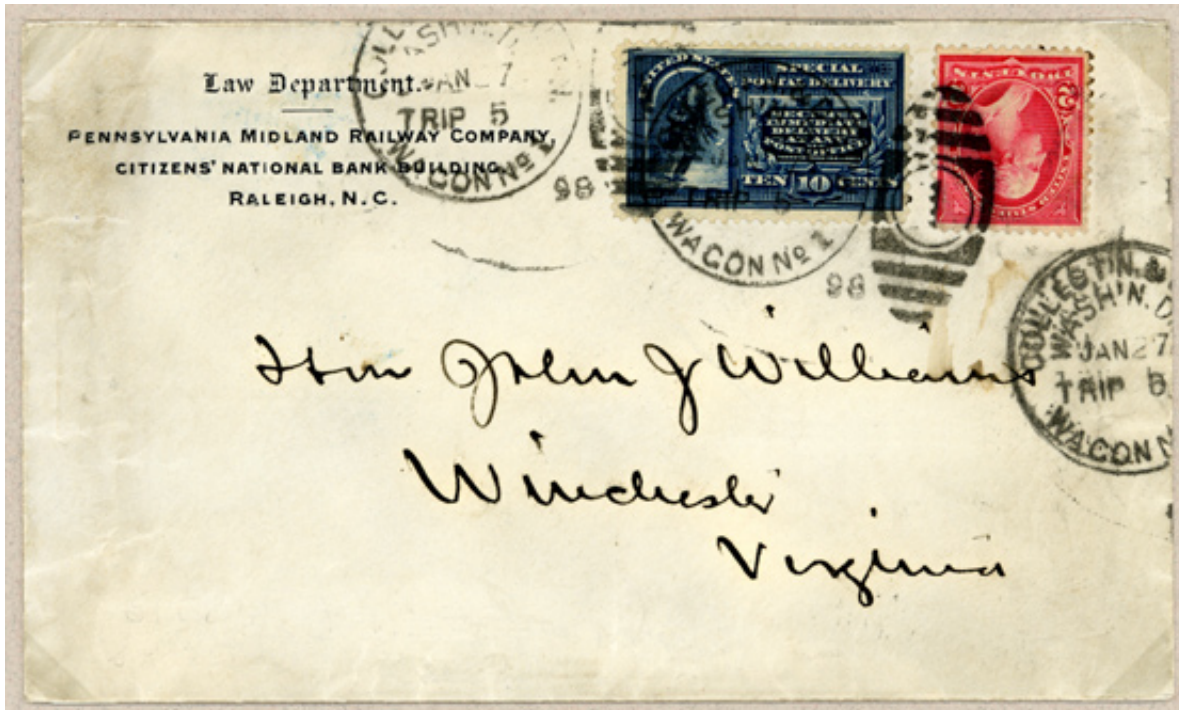 Law Department.
PENNSYLVANIA MIDLAND RAILWAY COMPANY,
CITIZENS' NATIONAL BANK BUILDING,
RALEIGH, N. C.
WASH'N. D.
JAN 27
TRIP 5
WAGON No 1
98
UNITED STATES
SPECIAL
POSTAL DELIVERY
SECURES
IMMEDIATE
DELIVERY
AT ANY
POST OFFICE
TEN 10 CENTS
TRIP 5
WAGON No 1
98
2
COLLECT'N. &
WASH'N. D.
JAN 27
TRIP 5
WAGON N
Hon John J Williams
Winchester
Virginia